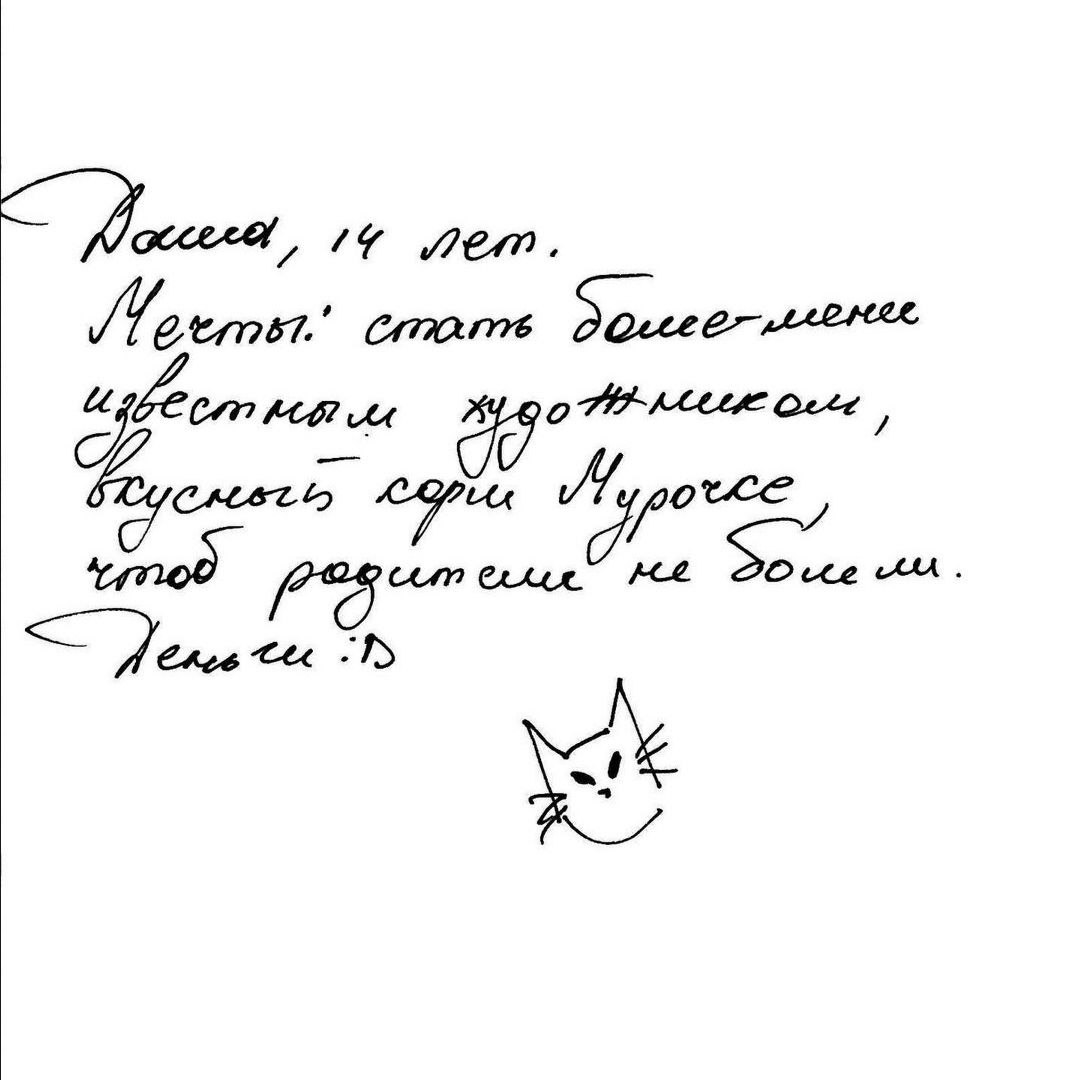 Даша, 14 лет.
Мечты: стать более-мене
известным художником,
вкусный корм Мурочке,
чтоб родители не болели.
Деньги :D